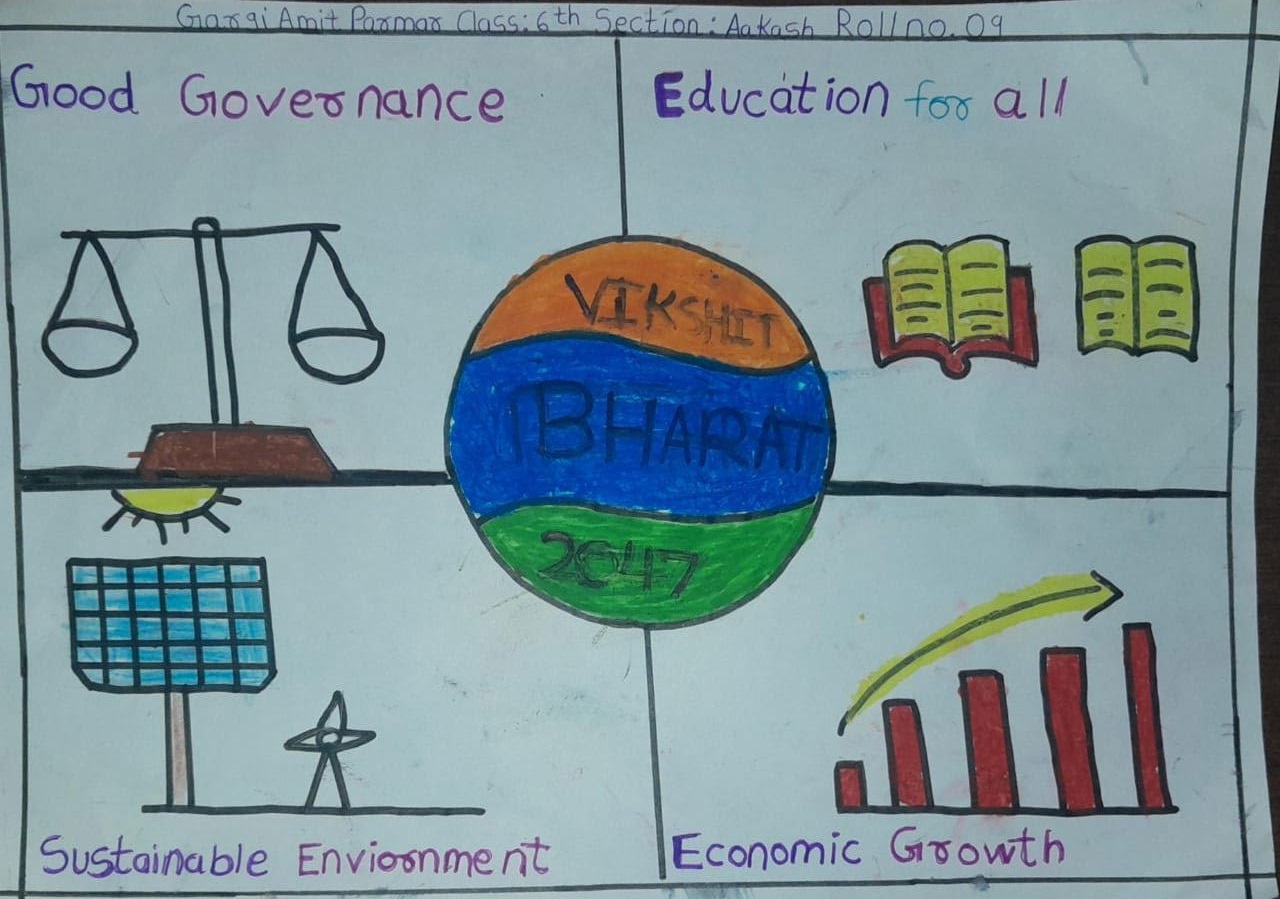 Gargi Amit Parmar Class: 6th Section: Aakash Roll no. 09
Good Governance
Education for all
VIKSHIT
BHARAT
2047
Sustainable Enviornment
Economic Growth